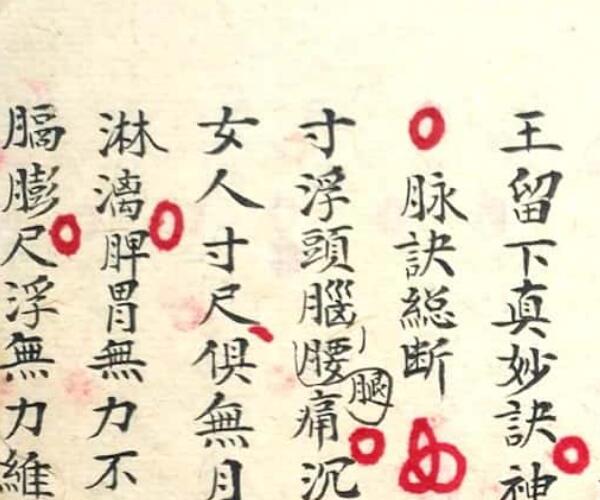 王留下真妙訣神
脉訣総断
寸浮頭腦腰痛沉
腿
女人寸尺俱無月
淋漓脾胃無力不
膈膨尺浮無力維